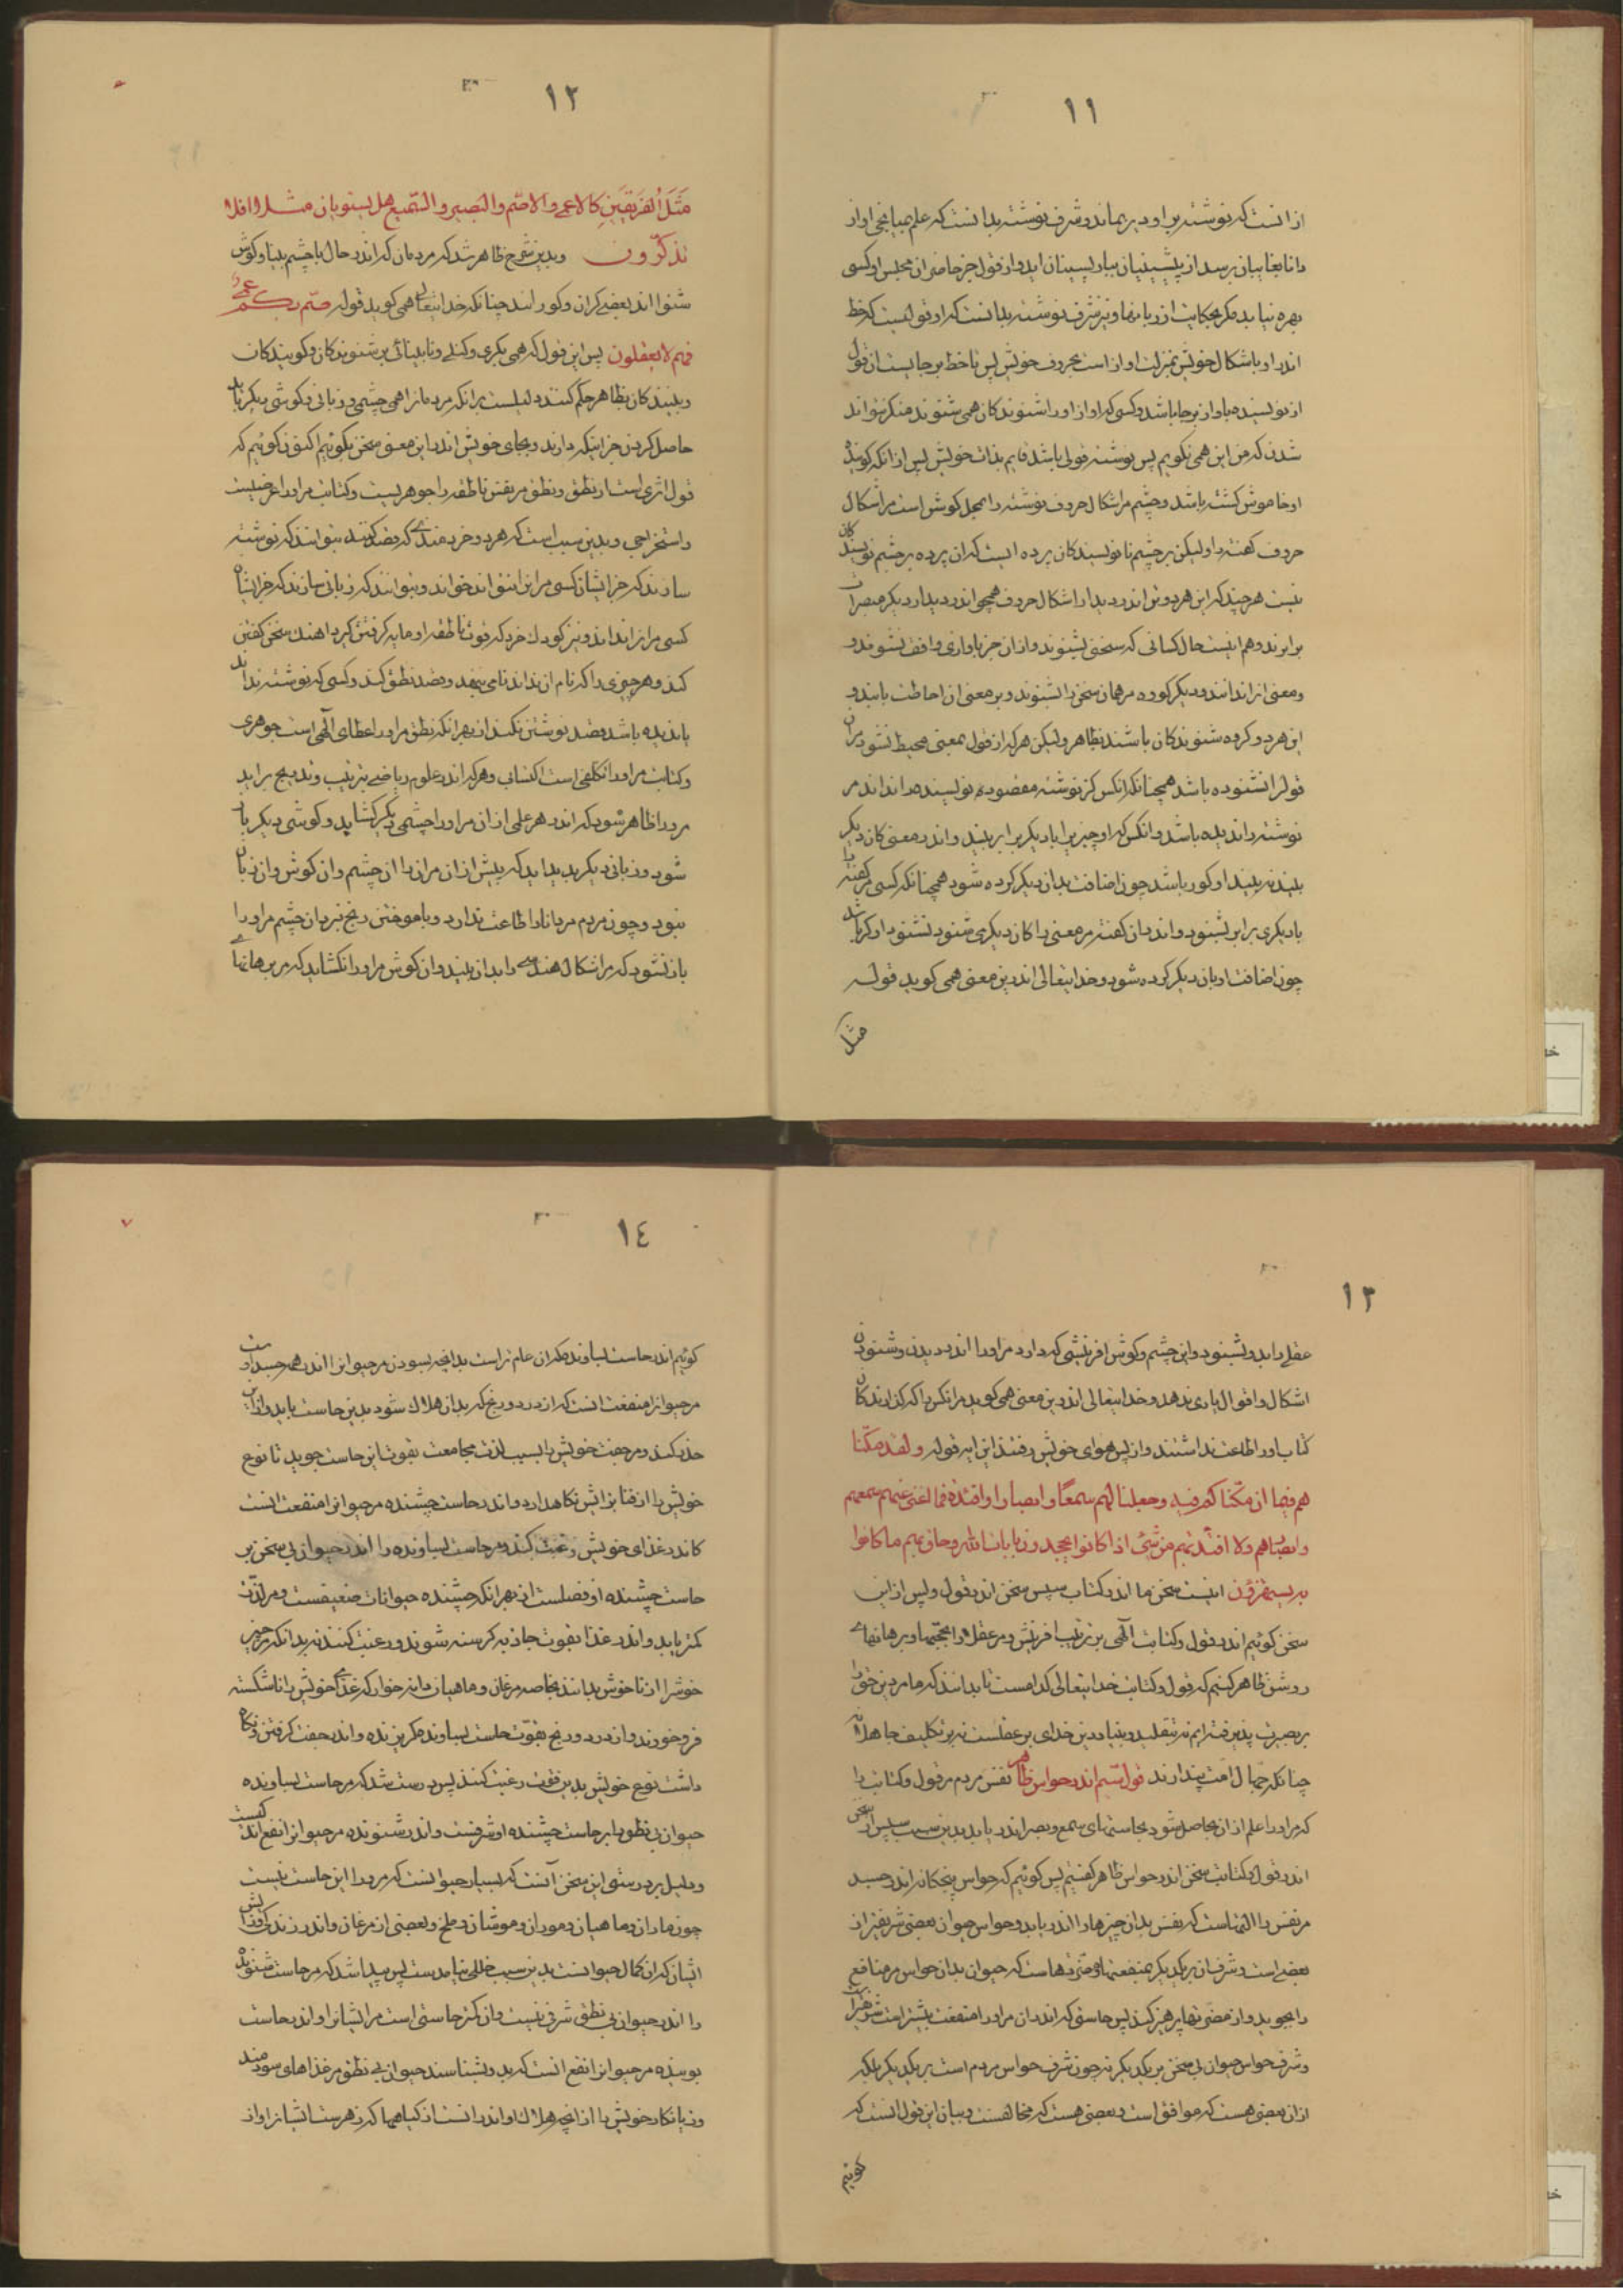 ١١
ازانست که نوشته بر او دیر بماند و شرف نوشته بدانست که علم بمیانجی او از
دانا بغایبان برسد از پیشینیان بباز پسینان اید و از قول جز حاضران مجلس او کسی
بهره نیابد مگر بحکایت از زبانها و نیز شرف نوشته بدانست که او قولیست که خط
اندر او باشکال خویش بمنزلت اواز است بحروف خویش پس تا خط برجایست ان قول
از نویسنده باواز برجا باشد و کسی که اواز او را شنوندگان همی شنوند منکر نتواند
شدن که من این همی نگویم پس نوشته قولی باشد قایم بذات خویش پس ازانکه گوینده
او خاموش گشته باشد و چشم مر اشکال حروف نوشته را بمحل گوش است مر اشکال
حروف گفته را ولیکن بر چشم نانویسندگان پرده ایست که ان پرده بر چشم نویسندگان
نیست هر چند که این هر دو تن اندر دیدار اشکال حروف همچو اندر دیدار دیگر مبصرات
برابرند و هم اینست حال کسانی که سخنی بشنوند و ازان جز باوازی واقف نشوند و
و معنی انرا ندانند و دیگر گروه مر همان سخن را بشنوند و بر معنی ان احاطت یابند و
این هر دو گروه شنوندگان باشند بظاهر ولیکن هر که از قول بمعنی محیط نشود مران
قول را نشنوده باشد همچنانکه انکس کز نوشته مقصود نویسنده را نداند مر
نوشته را ندیده باشد و انکس که او چیزیرا با دیگر برابر ببیند و اندر معنی کان دیگر
بیند نبیند او کور باشد چون اضافت بدان دیگر کرده شود همچنانکه کسی مر گفته را
با دیگری برابر بشنود و اندر ان گفته مر معنی را کان دیگری شنود نشنود او کر باشد
چون اضافت او بان دیگر کرده شود و خدایتعالی اندرین معنی همی گوید قوله
مثل
١٢
مَثَلُ الفَریقَینِ کالاعمی والاصّم والبصیر والسّمیع هل یستویان مثلا افلا
تذکّرون وبدین شرح ظاهر شد که مردمان که اندر حال با چشم بینا و گوش
شنوا اند بعضی کران و کورانند چنانکه خدایتعالی همی گوید قوله صمّ بکم عمی
فهم لایعقلون پس این قول که همی بکری و گنگی و نابینائی بر شنوندگان و گویندگان
و بینندگان بظاهر حکم کند دلیلست برانکه مردمانرا همی چشمی و زبانی و گوشی دیگر باید
حاصل کردن جز اینکه دارند و بجای خویش اندر این معنی سخن بگوئیم اکنون گوئیم که
قول اثری است از نطق و نطق مر نفس ناطقه را جوهریست و کتابت مر او را عرضیست
و استخراجی و بدین سبب است که هر دو خردمندی که قصد کنند بتوانند که نوشته
سازند که جز ایشان کسی مر انرا نتواند خواند و نتوانند که زبانی سازند که جز ایشان
کسی مر انرا نداند و نیز کودک خرد که قوت ناطقه او مایه گرفتن گیرد اهنگ سخن گفتن
کند و هر چیزی را که نام ان نداند نامی بنهد و قصد نطق کند و کسی که نوشته نداند
یا ندیده باشد قصد نوشتن نکند از بهر انکه نطق مر او را عطای الهی است جوهری
و کتابت مر او را تکلفی است اکتسابی و هر که اندر علوم ریاضی بترتیب و تدریج براید
مر او را ظاهر شود که اندر هر علمی ازان مر او را چشمی دیگر گشاید و گوشی دیگر باز
شود و زبانی دیگر پدید اید که پیش ازان مر انرا ان چشم و ان گوش و ان زبان
نبود و چون مردم مر دانا را طاعت ندارد و باموختن رنج نبرد ان چشم مر او را
باز نشود که مر اشکال هندسی را بدان بیند و ان گوش مر او را نگشاید که مر برهانهای
١٣
عقلی را بدو بشنود و این چشم و گوش افرینشی که دارد مر او را اندر دیدن و شنودن
اشکال و اقوال یاری ندهد و خدایتعالی اندرین معنی همی گوید مرانکس را که گذارندگان
کتاب او را طاعت نداشتند و از پس هوای خویش رفتند این ایه قوله ولقد مکّنّا
هم فیما ان مکّنّاکم فیه وجعلنا لهم سمعًا وابصارا وافئدة فما اغنی عنهم سمعهم
وابصارهم ولا افئدتهم من شیٔ اذا کانوا یجحدون بایات الله وحاق بهم ما کانوا
به یستهزؤن اینست سخن ما اندر کتاب سپس سخن اندر قول و پس ازین
سخن گوئیم اندر قول و کتابت الهی بر ترتیب افرینش و مر عقلا را بحجّتها و برهانهای
روشن ظاهر کنیم که قول و کتابت خدایتعالی کدامست تا بدانند که ما مر دین حق را
ببصیرت پذیرفته ایم نه بتقلید و بنیاد دین خدای بر عقلست نه بر تکلیف جاهلان
چنانکه جهّال امت پندارند قول سیّم اندر حواس ظاهر نفس مردم مر قول و کتابت را
که مر او را علم ازان حاصل شود بحاستهای سمع و بصر اندر یابد بدین سبب سپس از سخن
اندر قول و کتابت سخن اندر حواس ظاهر گفتیم پس گوئیم که حواس پنجگانه اندر جسد
مر نفس را التهاست که نفس بدان چیزها را اندر یابد و حواس حیوان بعضی شریفتر از
بعضی است و شرف ان بر یکدیگر بمنفعتها و مضرّتهاست که حیوان بدان حواس مر منافع
را بجوید و از مضرتها پرهیز کند پس حاستی که اندران مر او را منفعت بیشتر است شریفتر است
و شرف حواس حیوان بی سخن بر یکدیگر نه چون شرف حواس مردم است بر یکدیگر بلکه
ازان بعضی هست که موافق است و بعضی هست که مخالفست و بیان این قول انست که
گوئیم
١٤
گوئیم اندر حاست بساونده که ان عام تر است بدانچه بسودن مر حیوانرا اندر همه جسد است
مر حیوانرا منفعت انست که از درد و رنج که بدان هلاک شود بدین حاست یابد و ازان
حذر کند و مر جفت خویش را بسبب لذت مجامعت بقوت این حاست جوید تا نوع
خویش را از فنا بزایش نگاهدارد و اندر حاست چشنده مر حیوانرا منفعت انست
کاندر غذای خویش رغبت کند و مر حاست بساونده را اندر حیوان بی سخن بر
حاست چشنده او فضلست از بهر انکه چشنده حیوانات ضعیفست و مر لذّت
کمتر یابد و اندر غذا بقوت جاذبه گرسنه شوند و رغبت کنند نه بدانکه مر چیز
خوشرا از ناخوش بدانند بخاصه مرغان و ماهیان دانه خوار که غذای خویش را ناشکسته
فرو خورند و از درد و رنج بقوّت حاست بساونده گریزنده و اندر جفت گرفتن و نگاه
داشت نوع خویش بدین قوت رغبت کنند پس درست شد که مر حاست بساونده
حیوان بی نطق را بر حاست چشنده او شرفست و اندر شنونده مر حیوانرا نفع اندکیست
و دلیل بر درستی این سخن آنست که بسیار حیوانست که مر او را این حاست نیست
چون ماران و ماهیان و موران و موشان و ملخ و بعضی از مرغان و اندر زندگی و زایش
ایشان که ان کمال حیوانست بدین سبب خللی نیامدست پس پیدا شد که مر حاست شنونده
را اندر حیوان بی نطق شرفی نیست و ان کمتر حاستی است مر ایشانرا و اندر حاست
بوینده مر حیوانرا نفع انست که بدو بشناسند حیوان بی نطق مر غذاهای سودمند
و زیانکار خویش را از انچه هلاک او اندر انست از گیاهها که زهر است ایشانرا و از